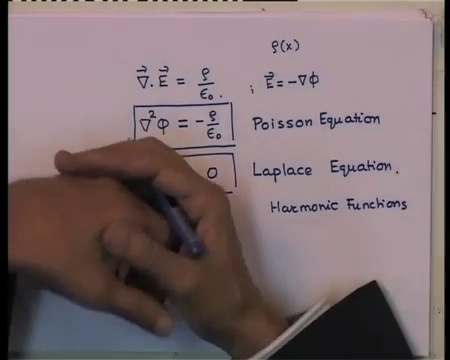 ρ(x)
∇⃗.E⃗ = ρ/ε₀. ; E⃗ = -∇Φ
∇²Φ = -ρ/ε₀ Poisson Equation
0 Laplace Equation.
Harmonic Functions